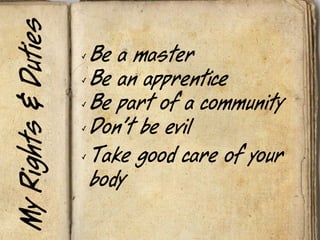 My Rights & Duties
✓ Be a master
✓ Be an apprentice
✓ Be part of a community
✓ Don't be evil
✓ Take good care of your
body